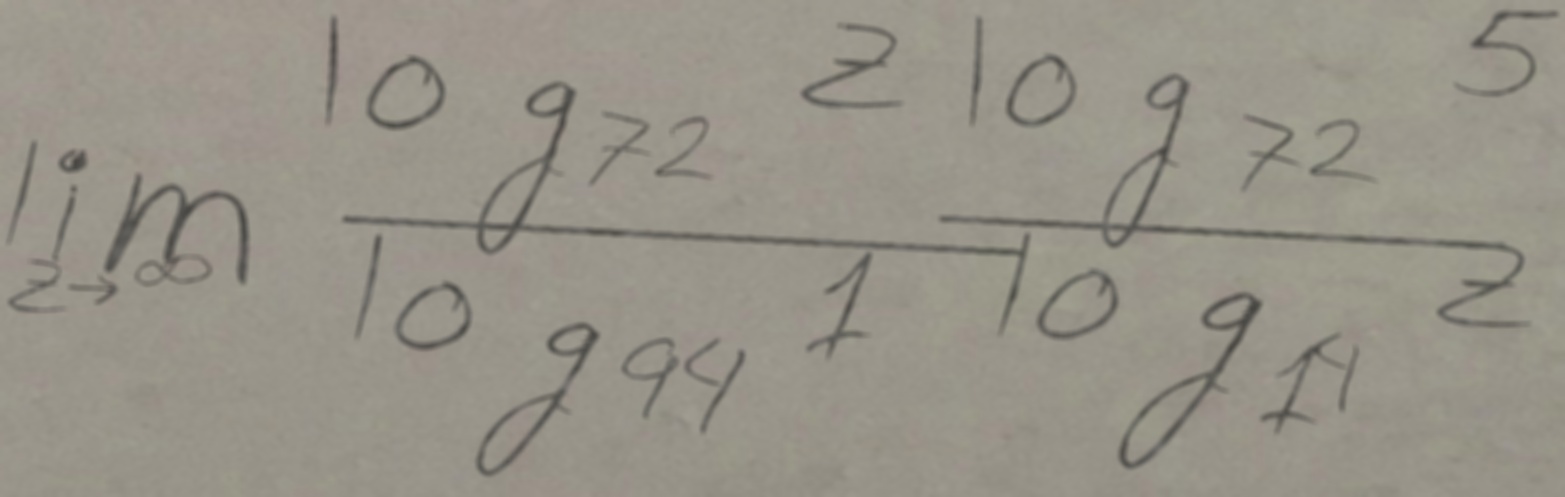 \lim_{z \to \infty} \frac{\log_{72} z}{\log_{94} 1} \frac{\log_{72} 5}{\log_{14} z}